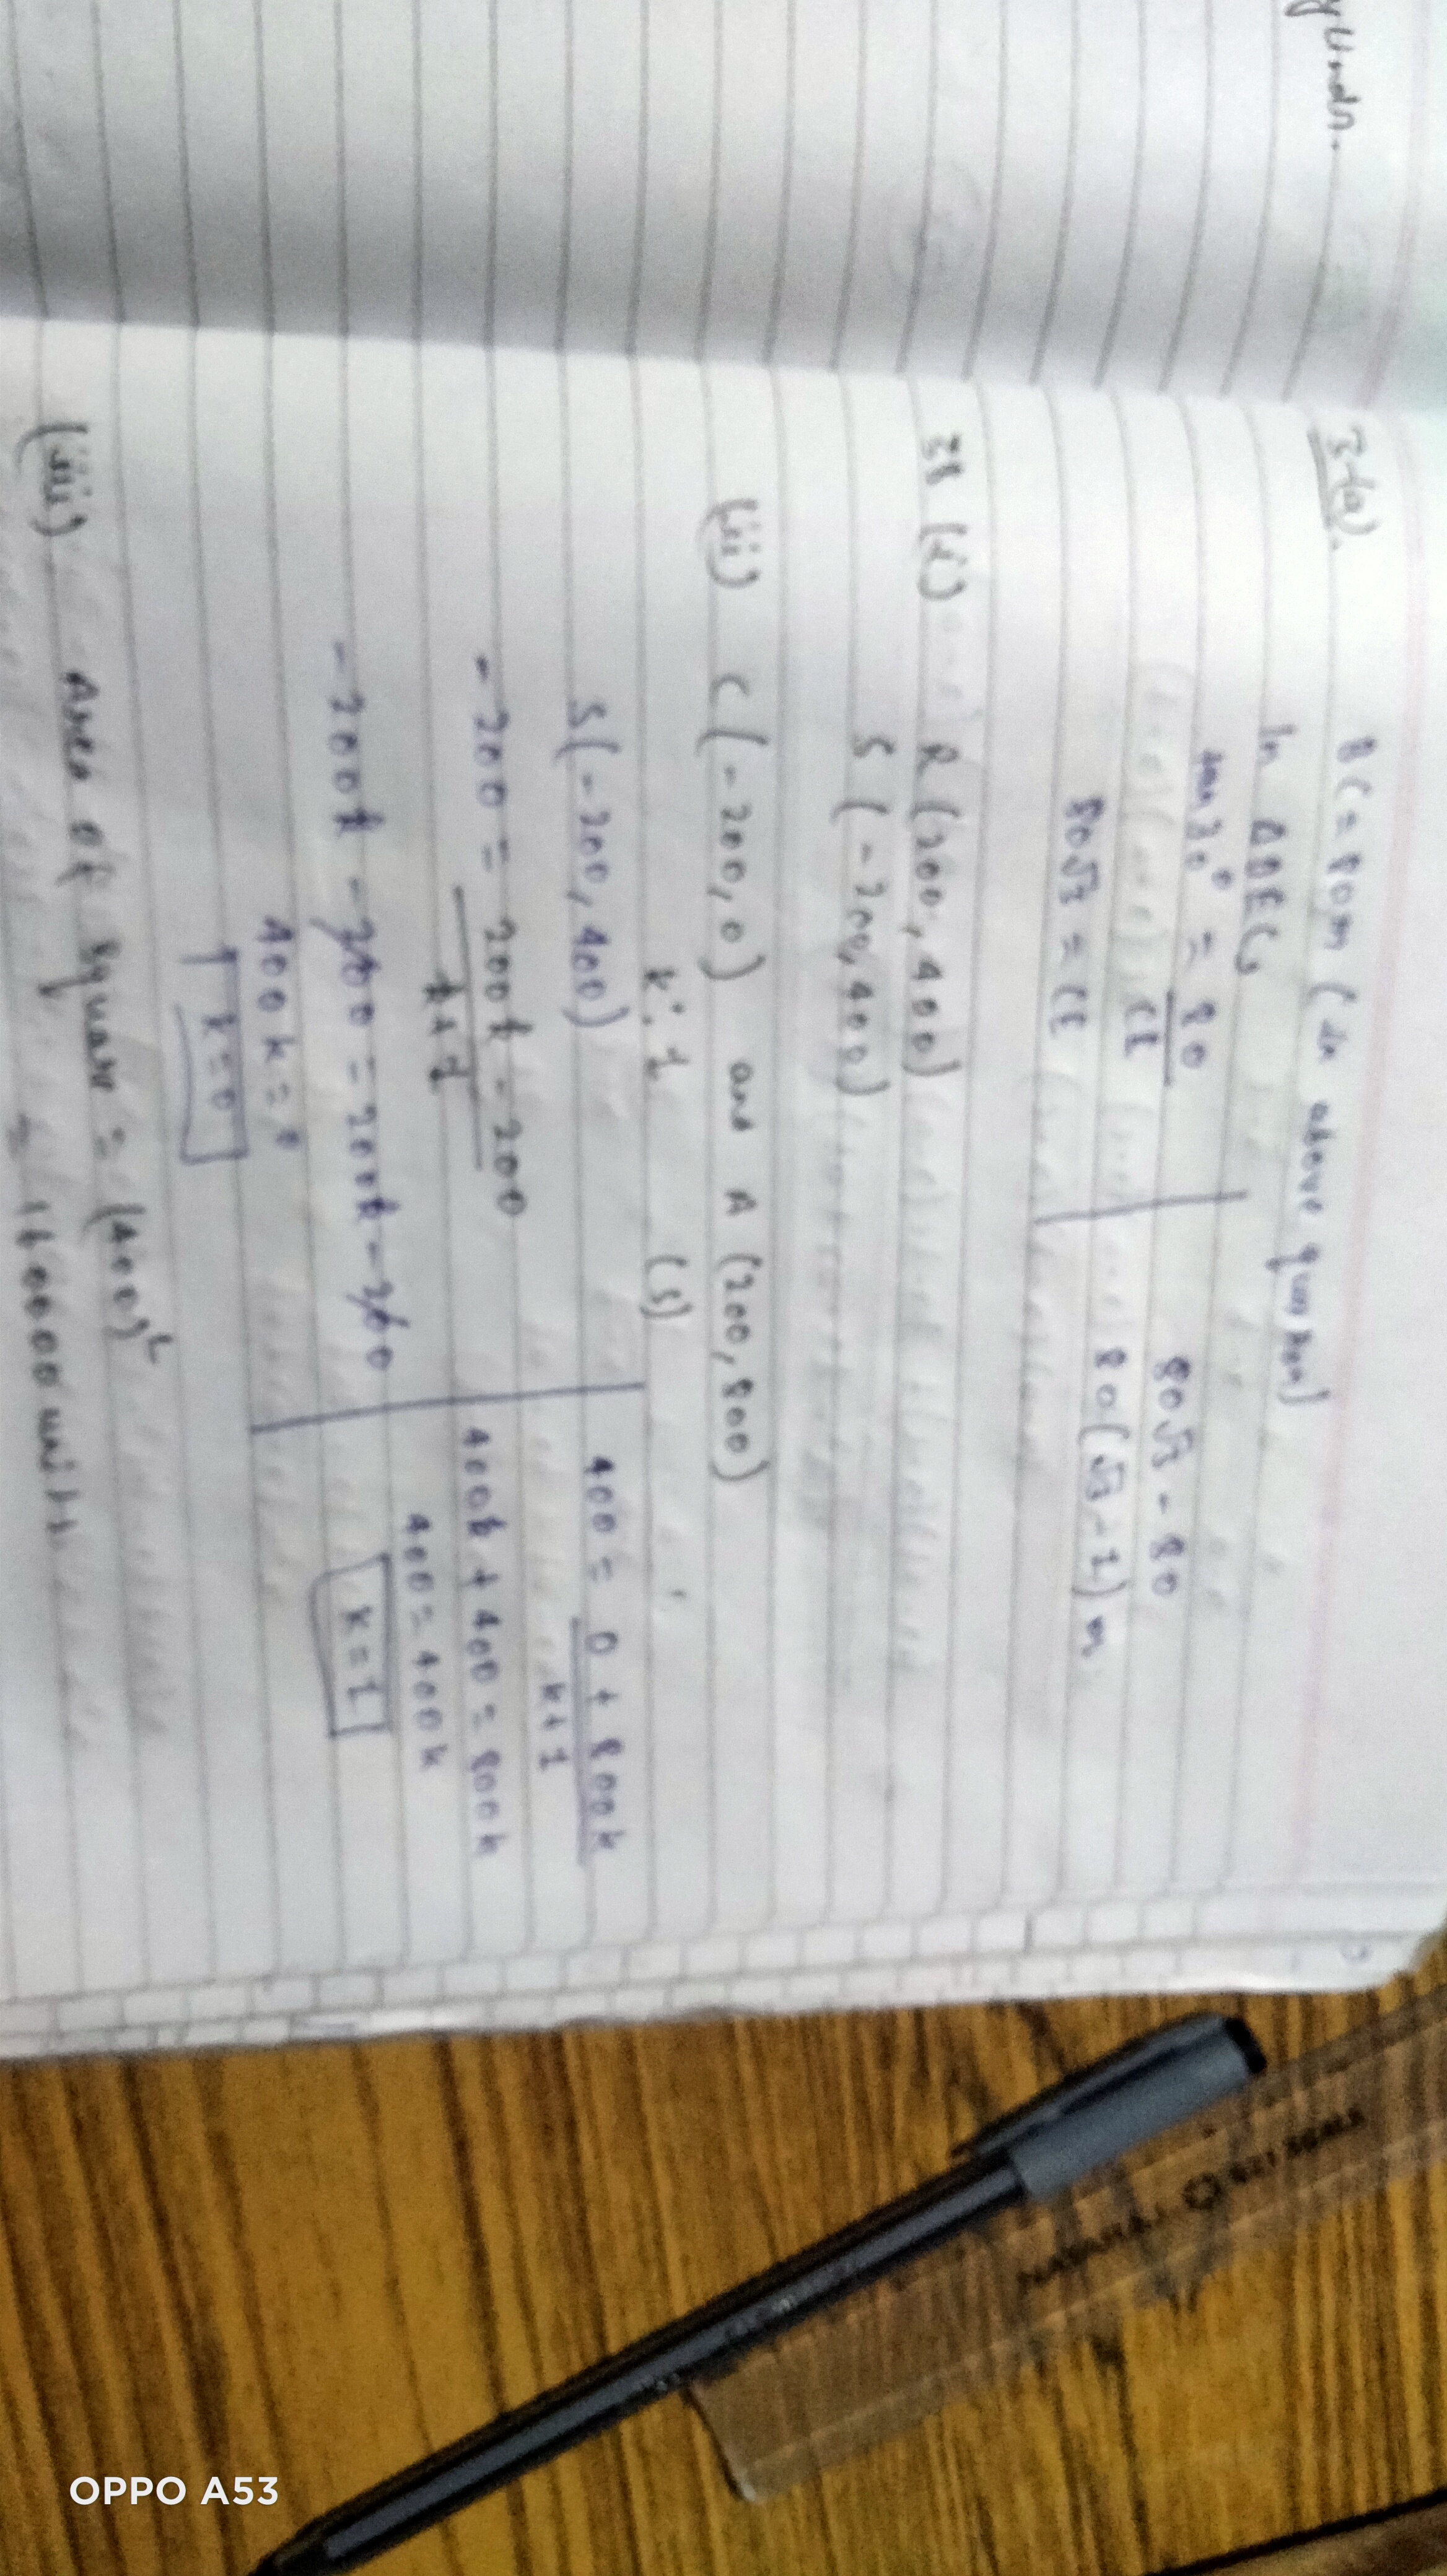 BC = 80m (in above question)
In ΔDEC,
tan30° = 80/CE
80√3 = CE
80√3 - 80
80(√3 - 1) m
38 (i) R (200, 400)
S (-200, 400)
(ii) C (-200, 0) and A (200, 800)
k : 1 (S)
S(-200, 400)
-200 = 200k - 200 / k+1
-200k - 200 = 200k - 200
400k = 0
k = 0
400 = 0 + 800k / k+1
400k + 400 = 800k
400 = 400k
k = 1
(iii) Area of square = (400)²
= 160000 units
OPPO A53